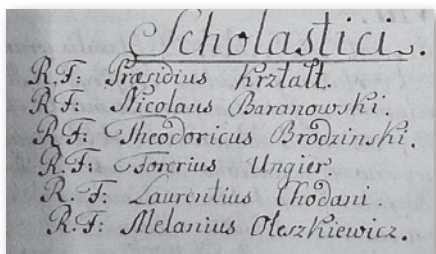 Scholastici.
R. F: Præsidius Krztałt.
R. F: Nicolaus Baranowski.
R. F: Theodoricus Brodzinski.
R. F: Torerius Ungier.
R. F: Laurentius Chodani.
R. F: Melanius Oleszkiewicz.